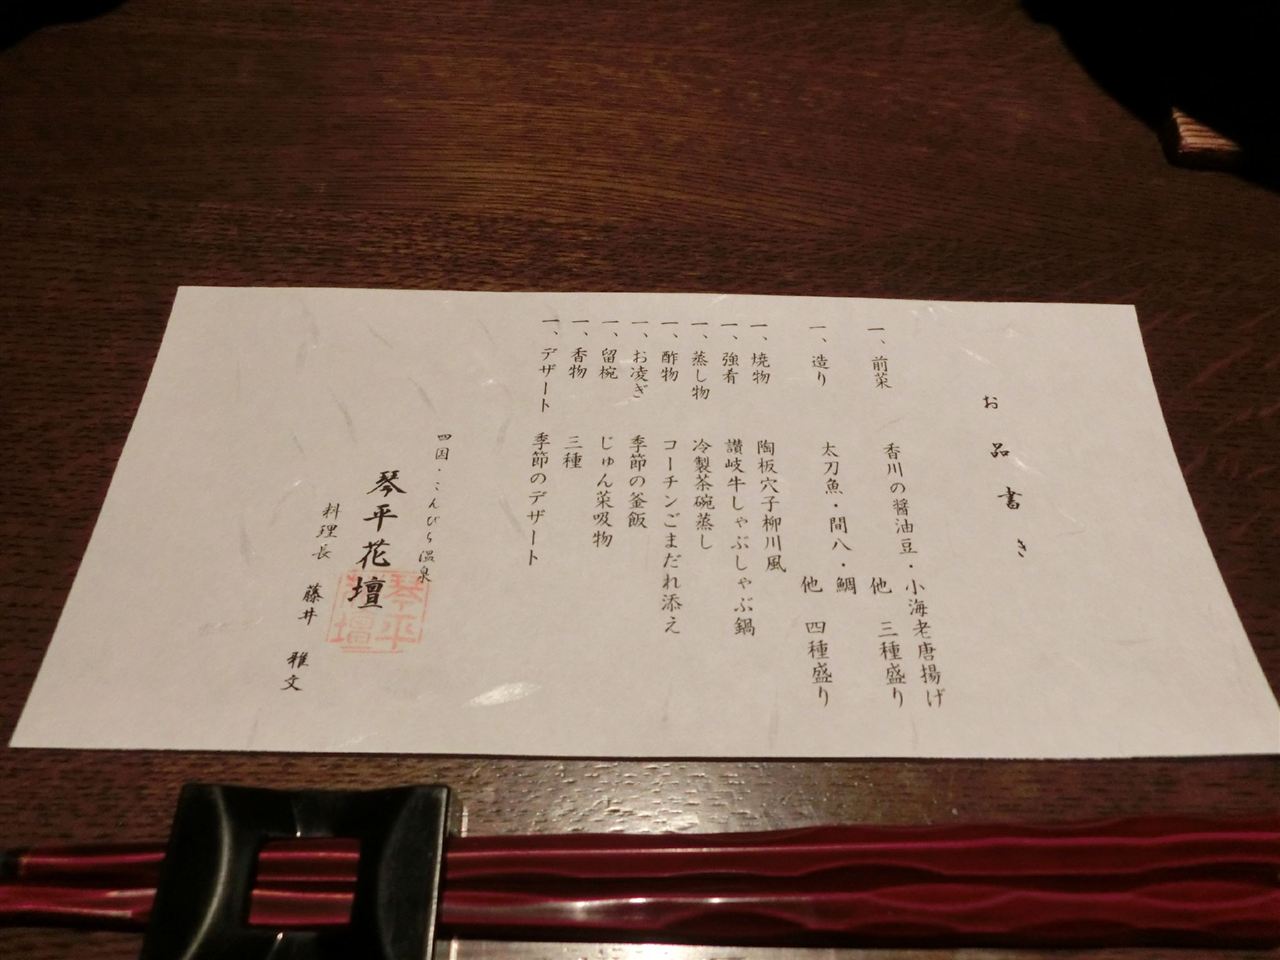 お品書き
一、前菜 香川の醤油豆・小海老唐揚げ
他 三種盛り
一、造り 太刀魚・間八・鯛
他 四種盛り
一、焼物 陶板穴子柳川風
一、強肴 讃岐牛しゃぶしゃぶ鍋
一、蒸し物 冷製茶碗蒸し
一、酢物 コーチンごまだれ添え
一、お凌ぎ 季節の釜飯
一、留椀 じゅん菜吸物
一、香物 三種
一、デザート 季節のデザート
四国・こんぴら温泉
琴平花壇
琴平花壇
料理長 藤井 雅文